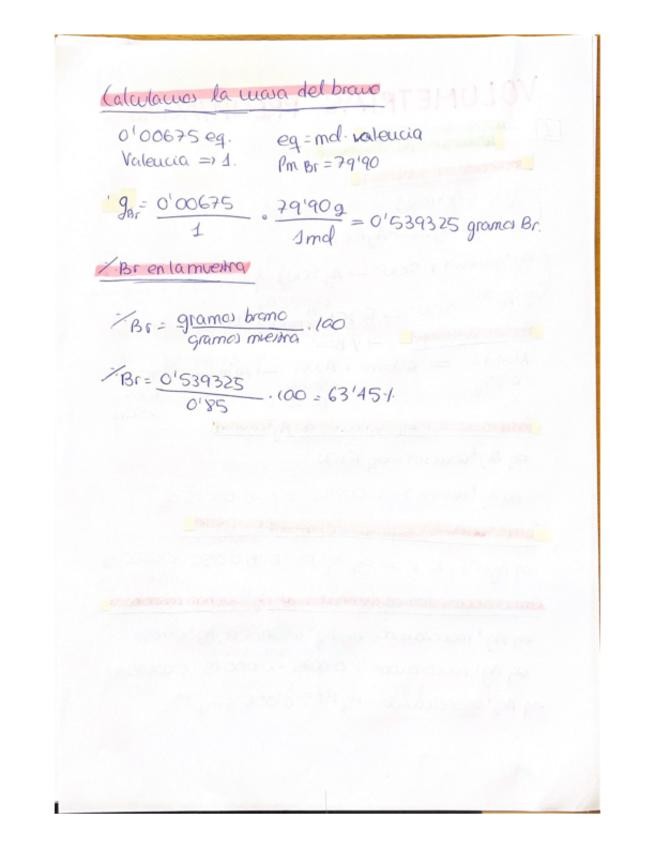 Calculamos la masa del bromo
0'00675 eq. eq = mol · valencia
Valencia => 1. Pm Br = 79'90
gBr = 0'00675 / 1 · 79'90 g / 1 mol = 0'539325 gramos Br.
% Br en la muestra
% Br = gramos bromo / gramos muestra · 100
% Br = 0'539325 / 0'85 · 100 = 63'45 %